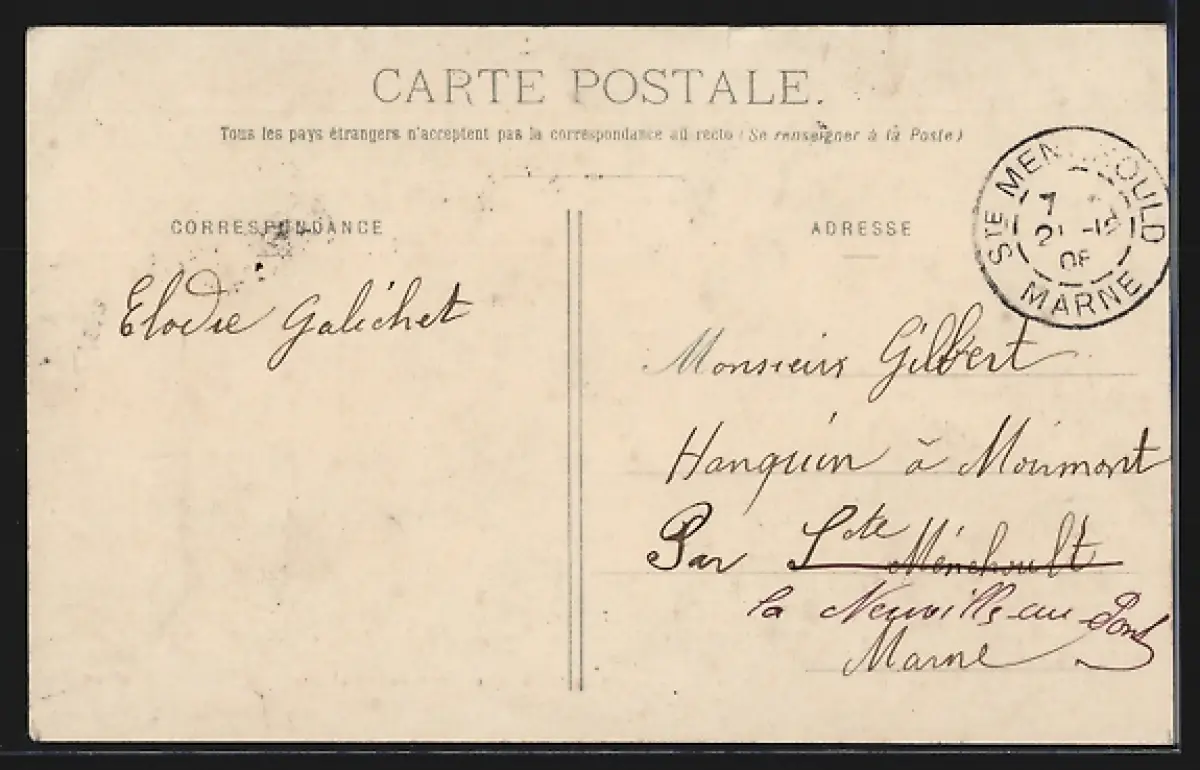 CARTE POSTALE.
Tous les pays étrangers n'acceptent pas la correspondance au recto (Se renseigner à la Poste)
CORRESPONDANCE
ADRESSE
STE MEN OULD
MARNE
Elodie Galichet
Monsieur Gilbert
Hanquin à Moimont
Par Ste Ménehoult
la Neuville-au-Pont
Marne